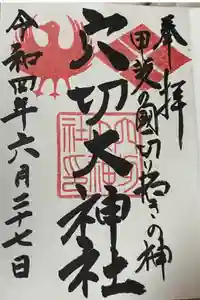 奉拝
甲斐國切り拓きの神
穴切大神社
令和四年六月二十七日